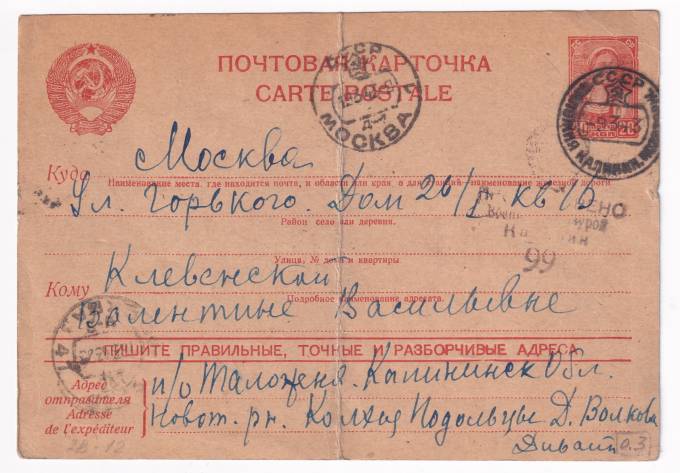 ПОЧТОВАЯ КАРТОЧКА
CARTE POSTALE
СССР
МОСКВА
СССР
20 КОП 20
Куда Москва
Наименование места, где находится почта, и области или края, а для станций - наименование железной дороги
Ул. Горького. Дом 20/1 кв 16
Район село или деревня.
Улица, № дома и квартиры
99
Кому Клевенской
Подробное наименование адресата.
Валентине Васильевне
ПИШИТЕ ПРАВИЛЬНЫЕ, ТОЧНЫЕ И РАЗБОРЧИВЫЕ АДРЕСА
Адрес
отправителя
Adresse
de l'expéditeur
п/о Таложеня. Калининск Обл.
Новот. рн. Колхоз Подольцы Д. Волкова
28-12
0.3